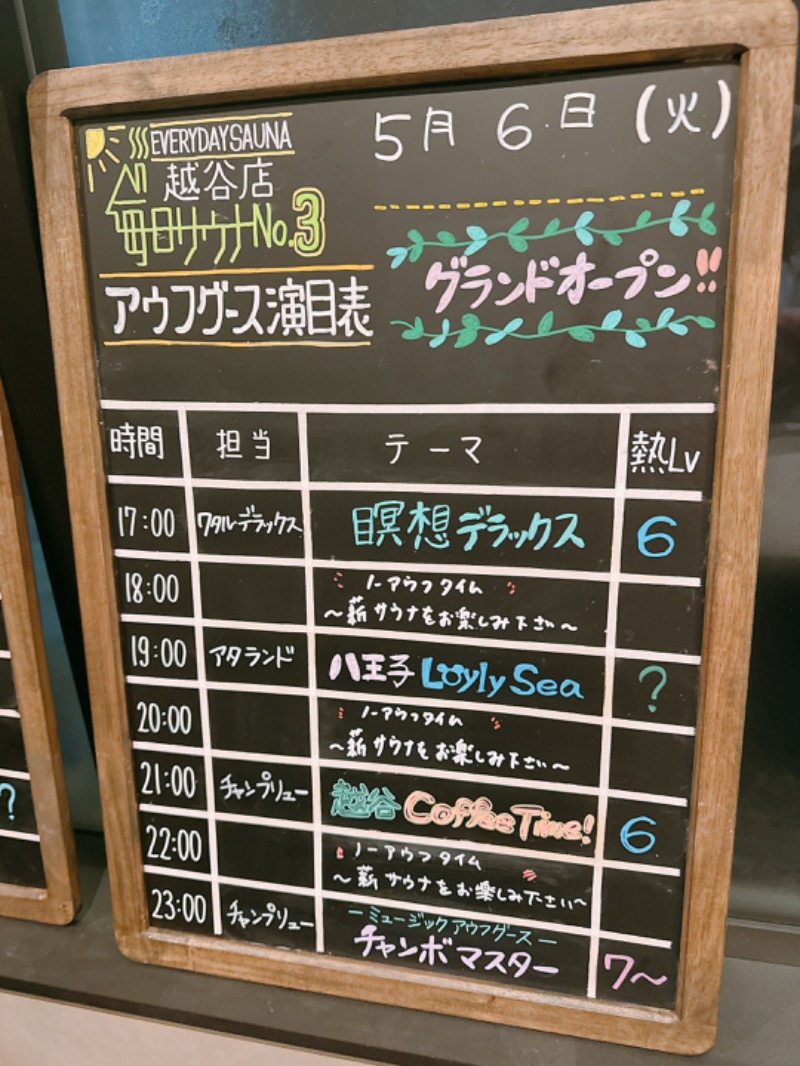 EVERYDAY SAUNA
越谷店
毎日サウナNo.3
アウフグース演目表
5月6日(火)
グランドオープン!!
時間 担当 テーマ 熱Lv
17:00 ワタルデラックス 瞑想デラックス 6
18:00 ノーアウフタイム
〜薪サウナをお楽しみ下さい〜
19:00 アタランド 八王子 Löyly Sea ?
20:00 ノーアウフタイム
〜薪サウナをお楽しみ下さい〜
21:00 チャンプリュー 越谷 Coffee Time! 6
22:00 ノーアウフタイム
〜薪サウナをお楽しみ下さい〜
23:00 チャンプリュー ーミュージックアウフグースー
チャンボマスター 7〜
?